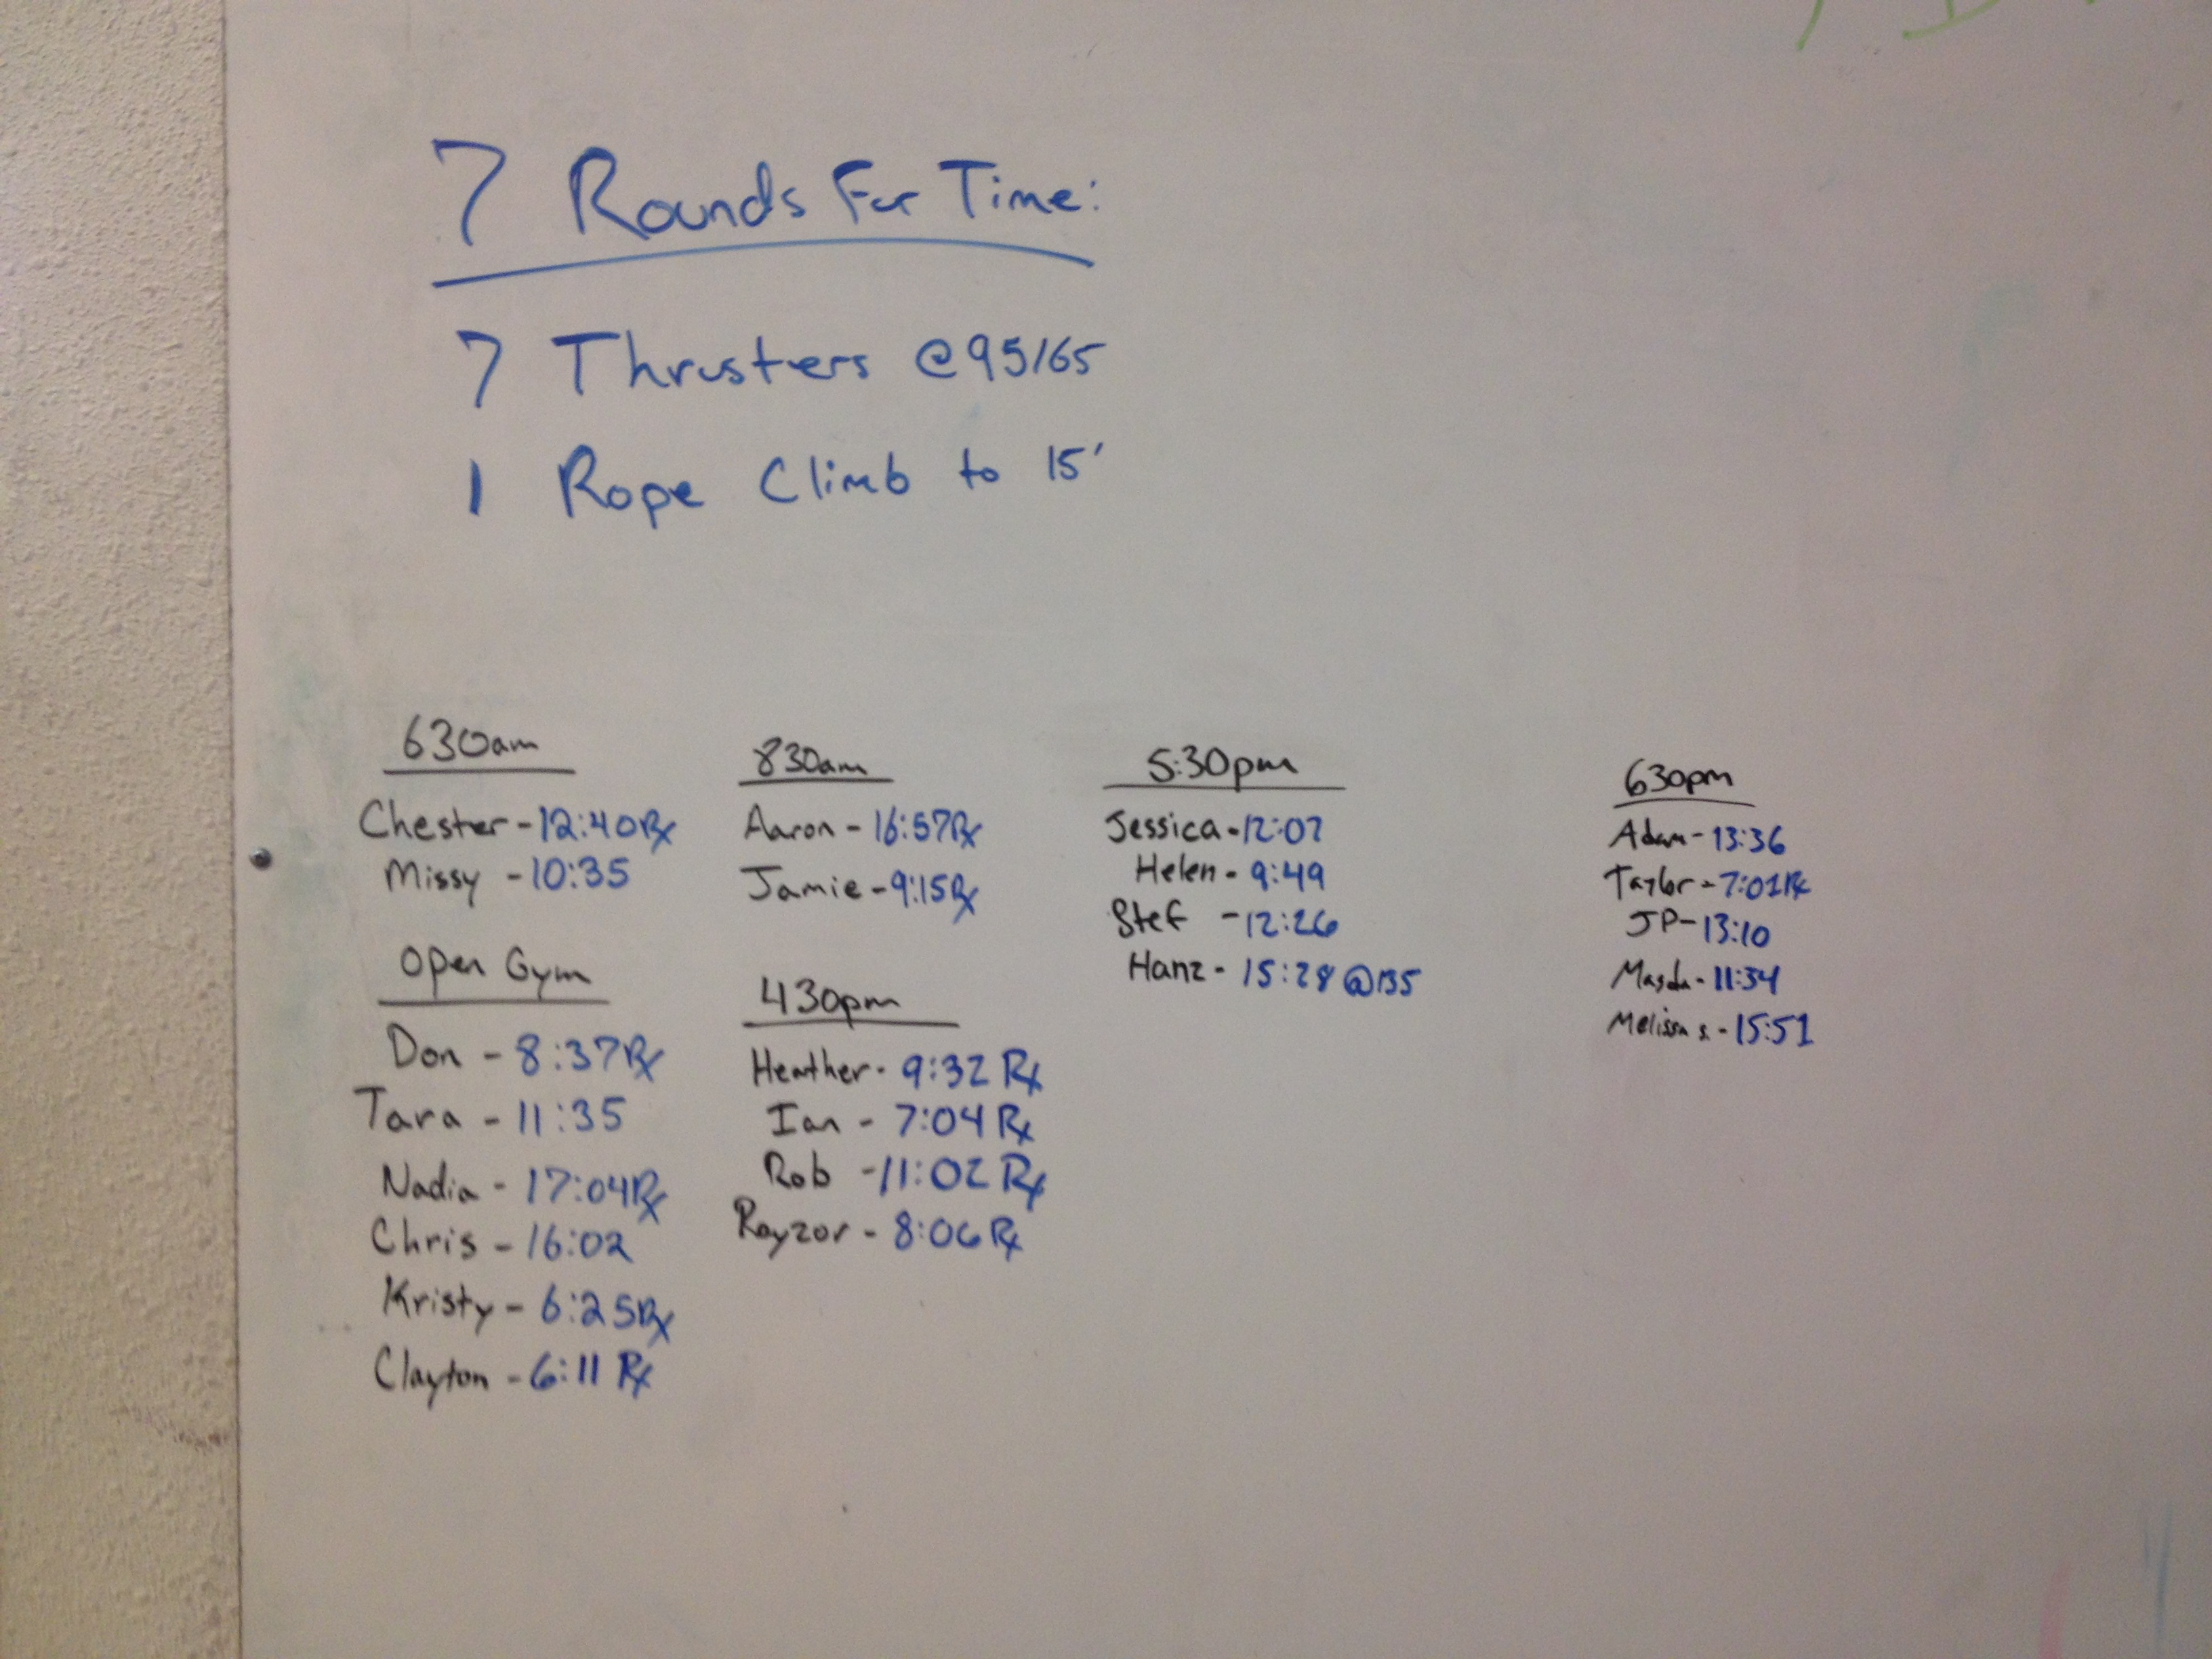 7 Rounds For Time:
7 Thrusters @ 95/65
1 Rope Climb to 15'
630am
Chester - 12:40 Rx
Missy - 10:35
Open Gym
Don - 8:37 Rx
Tara - 11:35
Nadia - 17:04 Rx
Chris - 16:02
Kristy - 6:25 Rx
Clayton - 6:11 Rx
830am
Aaron - 16:57 Rx
Jamie - 9:15 Rx
430pm
Heather - 9:32 Rx
Ian - 7:04 Rx
Rob - 11:02 Rx
Rayzor - 8:06 Rx
5:30pm
Jessica - 12:07
Helen - 9:49
Stef - 12:26
Hanz - 15:28 @135
630pm
Adam - 13:36
Taylor - 7:01 Rx
JP - 13:10
Magda - 11:34
Melissa S. - 15:51